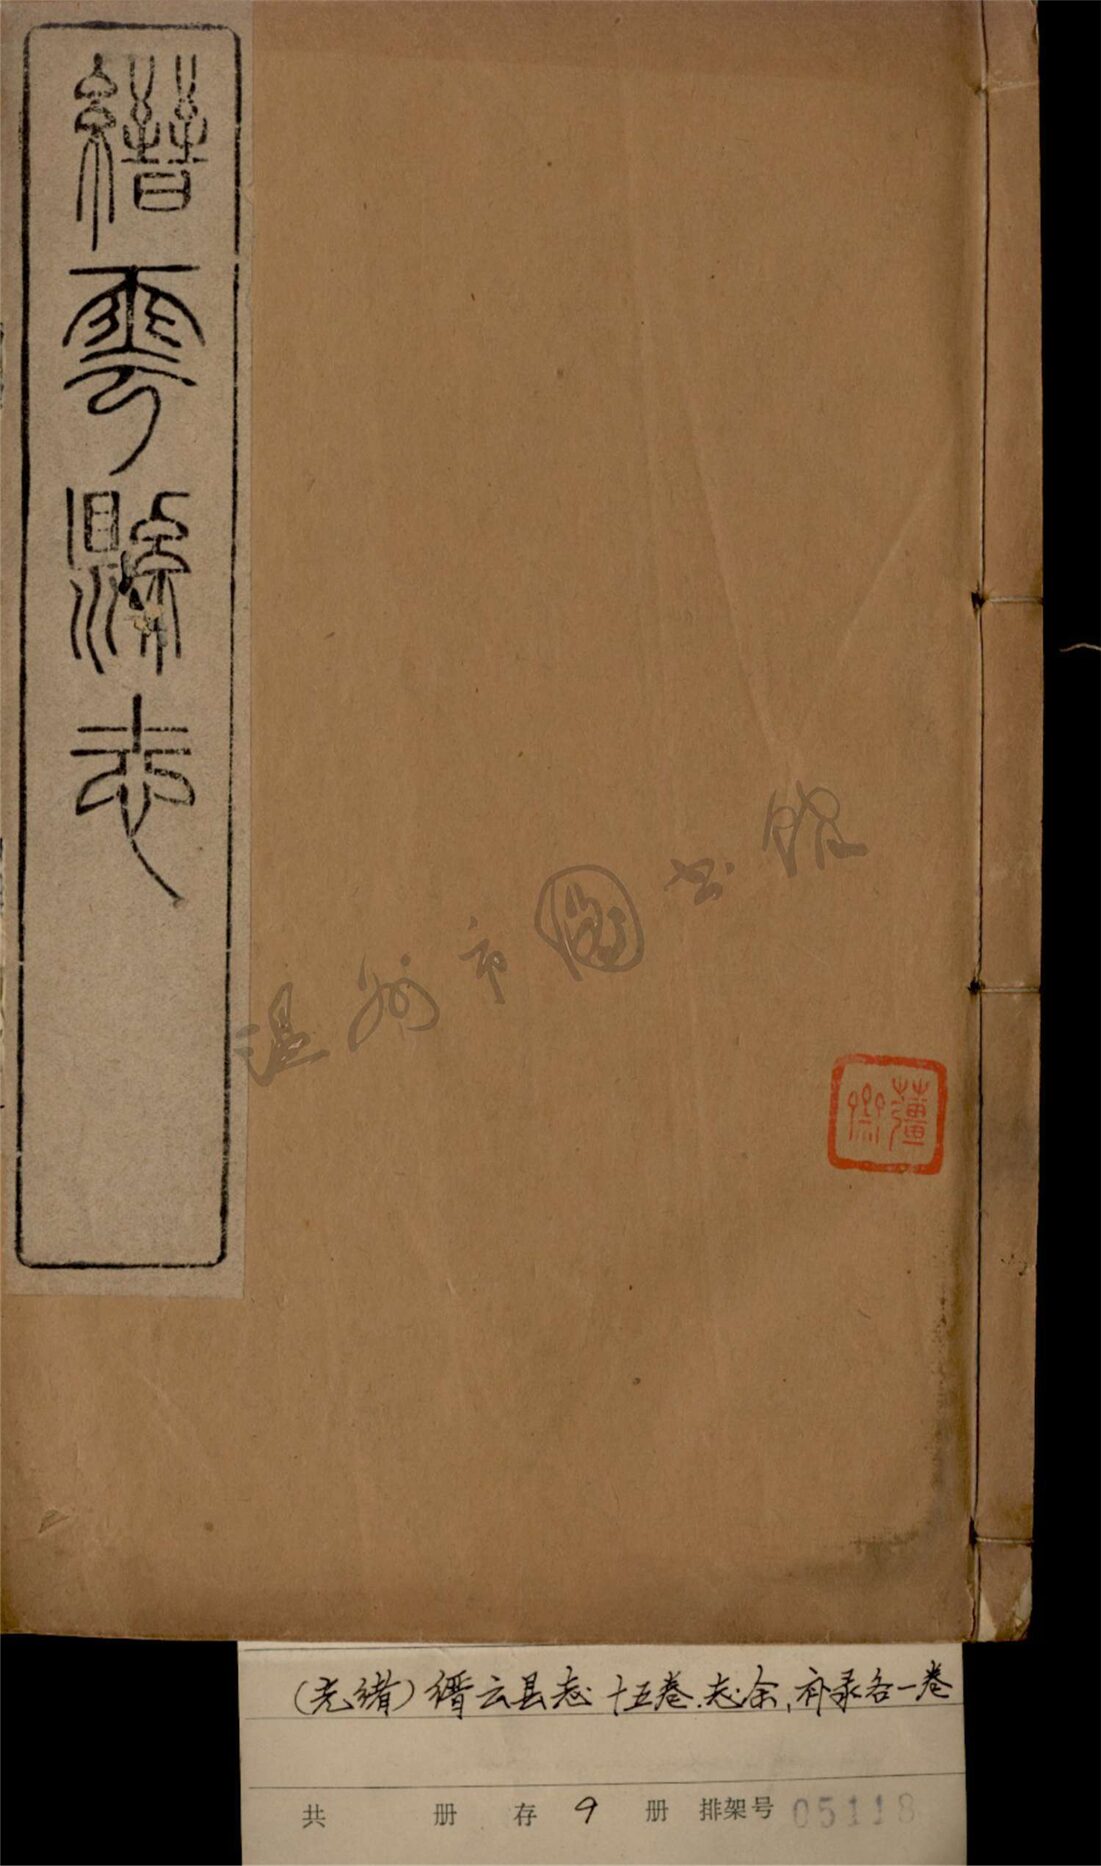 縉雲縣志
温州市圖书館
(光绪)缙云县志 十五卷.志余,补录各一卷
共 册 存 9 册 排架号 05118